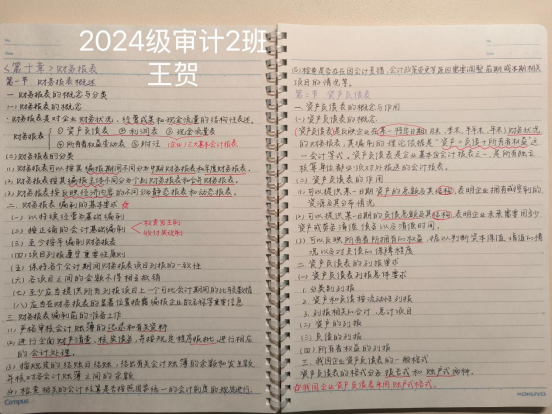 2024级审计2班
王贺
<第十章>财务报表
第一节 财务报表概述
一、财务报表的概念与分类
(一)财务报表的概念
财务报表是对企业财务状况、经营成果和现金流量的结构性表述。
财务报表
①资产负债表 ②利润表 ③现金流量表
④所有者权益变动表 ⑤附注
(二)财务报表的分类
(1)财务报表可以按其编报期间不同分中期财务报表和年度财务报表。
(2)财务报表按其编报主体不同分个别财务报表和合并财务报表。
(3)财务报表按反映经济内容的不同分静态报表和动态报表。
二、财务报表编制的基本要求☆
(一)以持续经营为基础编制
(二)按正确的会计基础编制
权责发生制
收付实现制
(三)至少按年编制财务报表
(四)项目列报遵守重要性原则
(五)保持各个会计期间财务报表项目列报的一致性
(六)各项目之间的金额不得相互抵销
(七)至少应当提供所有列报项目上一个可比会计期间的比较数据
(八)应当在财务报表的显著位置披露编报企业的名称等重要信息
三、财务报表编制前的准备工作
(1)严格审核会计账簿的记录和有关资料
(2)进行全面财产清查、核实债务,并按规定程序报批,进行相应
的会计处理。
(3)按规定的结账日结账,结出有关会计账簿的余额和发生额
并核对各会计账簿之间的余额
(4)检查相关的会计核算是否按照国家统一的会计制度的规定进行。
(5)检查是否存在因会计差错、会计政策变更等原因需要调整前期或本期相关
项目的情况等。
第二节 资产负债表
一、资产负债表的概念与作用
(一)资产负债表的概念
资产负债表是反映企业在某一特定日期(月末、季末、半年末、年末)财务状况
的财务报表,其编制的理论依据是“资产=负债+所有者权益”这
一会计等式。资产负债表是企业基本会计报表之一,是所有独立核
算单位都必须对外报送的会计报表。
(二)资产负债表的作用
(1)可以提供某一日期资产的总额及其结构,表明企业拥有或控制的
资源及其分布情况
(2)可以提供某一日期的负债总额及其结构,表明企业未来需要用多少
资产或劳务清偿债务以及清偿时间。
(3)可以反映所有者所拥有的权益,据以判断资本保值、增值的情
况以及对负债的保障程度
二、资产负债表的列报要求
(一)资产负债表列报总体要求
1. 分类别列报
2. 资产和负债按流动性列报
3. 列报相关的合计、总计项目
(二)资产的列报
(三)负债的列报
(四)所有者权益的列报
三、我国企业资产负债表的一般格式
资产负债表的格式分为报告式和账户式两种。
☆我国企业资产负债表采用账户式格式。
Campus
KOKUYO